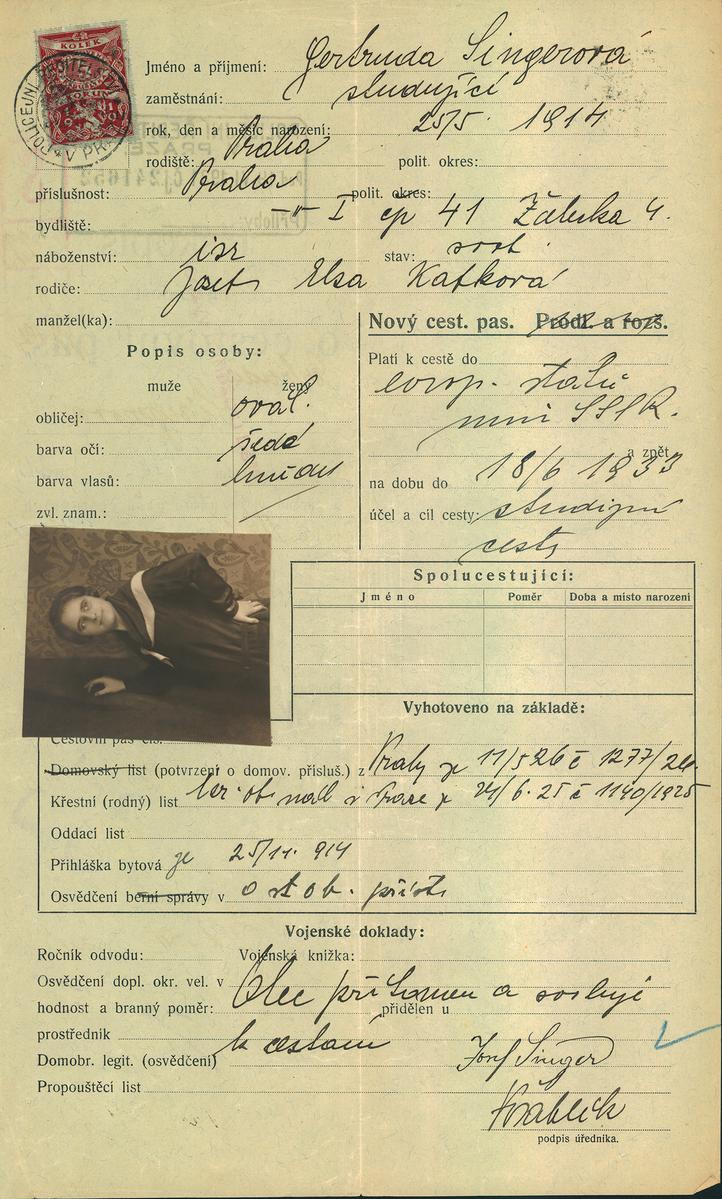 KOLEK
Jméno a příjmení: Gertruda Singerová
zaměstnání: studující
rok, den a měsíc narození: 25/5 1914
rodiště: Praha polit. okres:
příslušnost: Praha polit. okres:
bydliště: -"- I čp 41
náboženství: isr stav: svob.
rodiče: Josef Elsa Kafková
manžel(ka):
Nový cest. pas. Prodl. a rozš.
Popis osoby:
muže ženy
obličej: oval.
barva očí: šedé
barva vlasů: hnědé
zvl. znam.:
Platí k cestě do
evrop. států
mimo SSSR.
a zpět
na dobu do 18/6 1933
účel a cíl cesty: studijní
cesty
Spolucestující:
Jméno Poměr Doba a místo narození
Vyhotoveno na základě:
Cestovní pas čís.
Domovský list (potvrzení o domov. přísluš.) z Prahy ze 11/5 26 č 1277/26
Křestní (rodný) list isr. ob. náb v Praze z 24/6.25 č 1140/1925
Oddací list
Přihláška bytová ze 25/11. 914
Osvědčení berní správy v o st ob. přísl.
Vojenské doklady:
Ročník odvodu: Vojenská knížka:
Osvědčení dopl. okr. vel. v
hodnost a branný poměr: Otec přítomen a svoluje přidělen u
prostředník k cestám
Domobr. legit. (osvědčení) Josef Singer
Propouštěcí list
podpis úředníka.